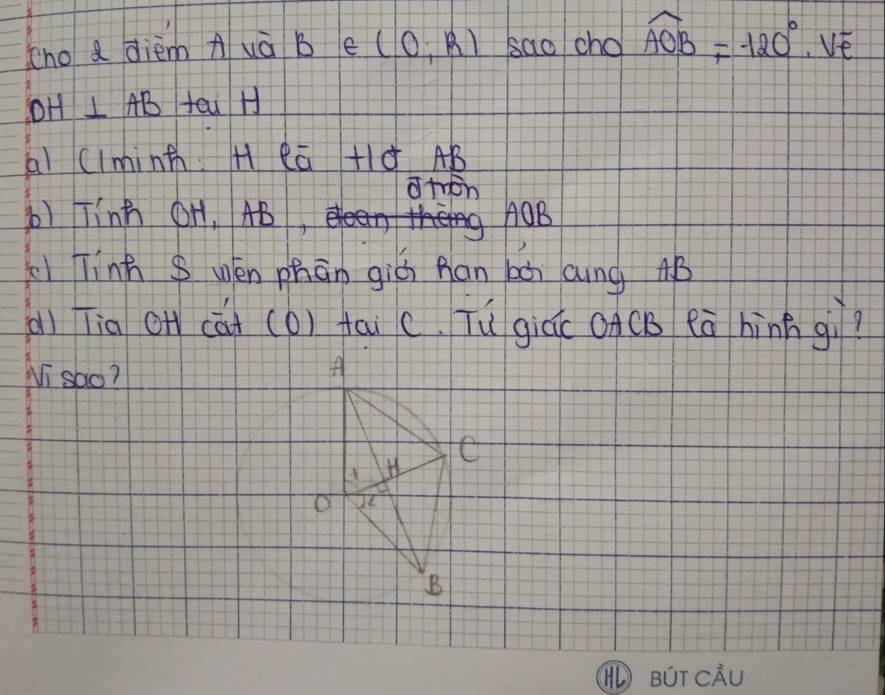 Cho 2 điểm A và B ∈ (O; R) sao cho AOB = 120°. Vẽ
OH ⊥ AB tại H
a) C/minh: H là t/đ AB
đ tròn
b) Tính OH, AB, đoạn thẳng AOB
c) Tính S viên phân giới hạn bởi cung AB
d) Tia OH cắt (O) tại C. Tứ giác OACB là hình gì?
Vì sao?
A
C
1 H
O 2
B
HL BÚT CẦU